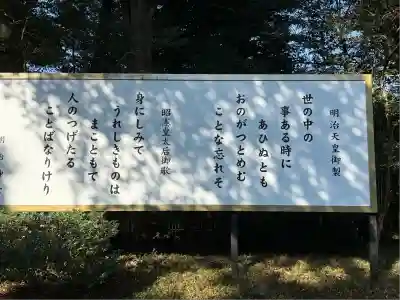 明治天皇御製
世の中の
事ある時に
あひぬとも
おのがつとめむ
ことな忘れそ
昭憲皇太后御歌
身にしみて
うれしきものは
まこともて
人のつげたる
ことばなりけり
明治神宮